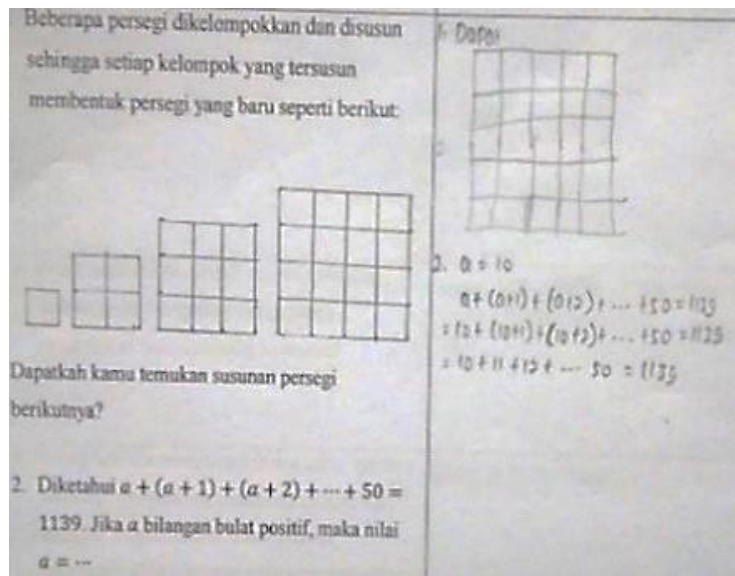 Beberapa persegi dikelompokkan dan disusun
sehingga setiap kelompok yang tersusun
membentuk persegi yang baru seperti berikut:
Dapatkah kamu temukan susunan persegi
berikutnya?
2. Diketahui a + (a + 1) + (a + 2) + ⋯ + 50 =
1139. Jika a bilangan bulat positif, maka nilai
a = ⋯
1. Dapat
2. a = 10
a + (a+1) + (a+2) + ... + 50 = 1139
= 10 + (10+1) + (10+2) + ... + 50 = 1139
= 10 + 11 + 12 + ... 50 = 1139